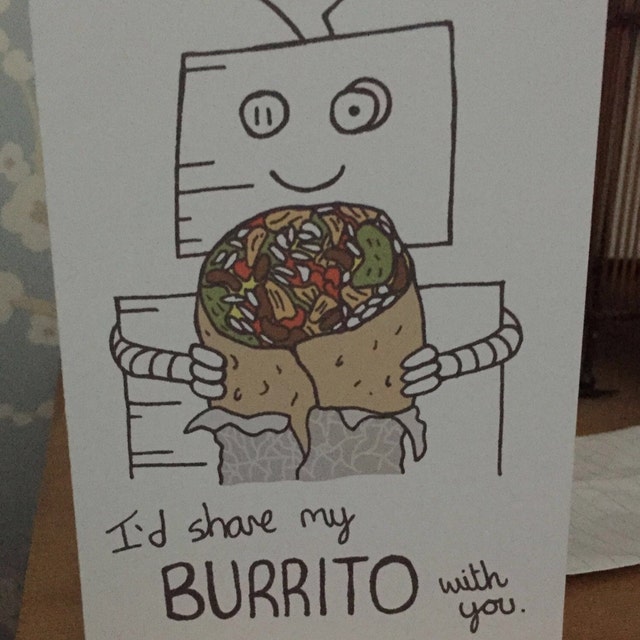 I'd share my
BURRITO with
you.